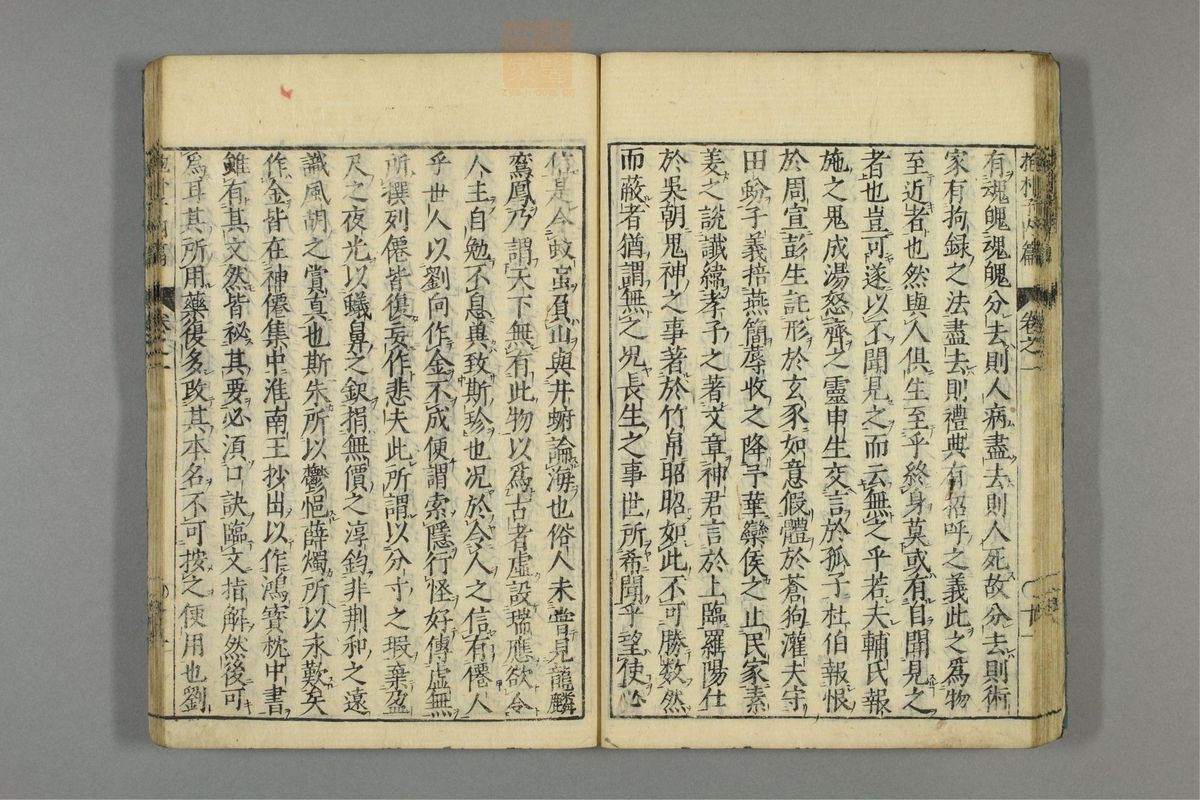 有魂魄魂魄分去則人病盡去則人死故分去則術
家有拘録之法盡去則禮典有招呼之義此之爲物
至近者也然與人俱生至乎終身莫或有自聞見之
者也豈可遂以不聞見之而云無之乎若夫輔氏報
施之鬼成湯怒齊之靈申生交言於孤子杜伯報恨
於周宣彭生託形於玄豕如意假體於蒼狗灌夫守
田蚡子義掊燕簡蓐收之降于莘欒侯之止民家素
姜之説讖緯孝子之著文章神君言於上臨羅陽仕
於吳朝鬼神之事著於竹帛昭昭如此不可勝数然
而蔽者猶謂無之况長生之事世所希聞乎望使必
信是令蚊䖟負山與井蛳論海也俗人未嘗見龍麟
鸞鳳乃謂天下無有此物以爲古者虛設瑞應欲令
人主自勉不息兾致斯珍也况於令人之信有僊人
乎世人以劉向作金不成便謂索隱行怪好傳虛無
所撰列僊皆復妄作悲夫此所謂以分寸之瑕棄盈
尺之夜光以蟻鼻之缺捐無價之淳鈞非荆和之遠
識風胡之賞真也斯朱所以鬱悒薛燭所以永歎矣
作金皆在神僊集中淮南王抄出以作鴻寳枕中書
雖有其文然皆秘其要必須口訣臨文指解然後可
爲耳其所用藥復多改其本名不可按之便用也劉
卷之一
卷之一